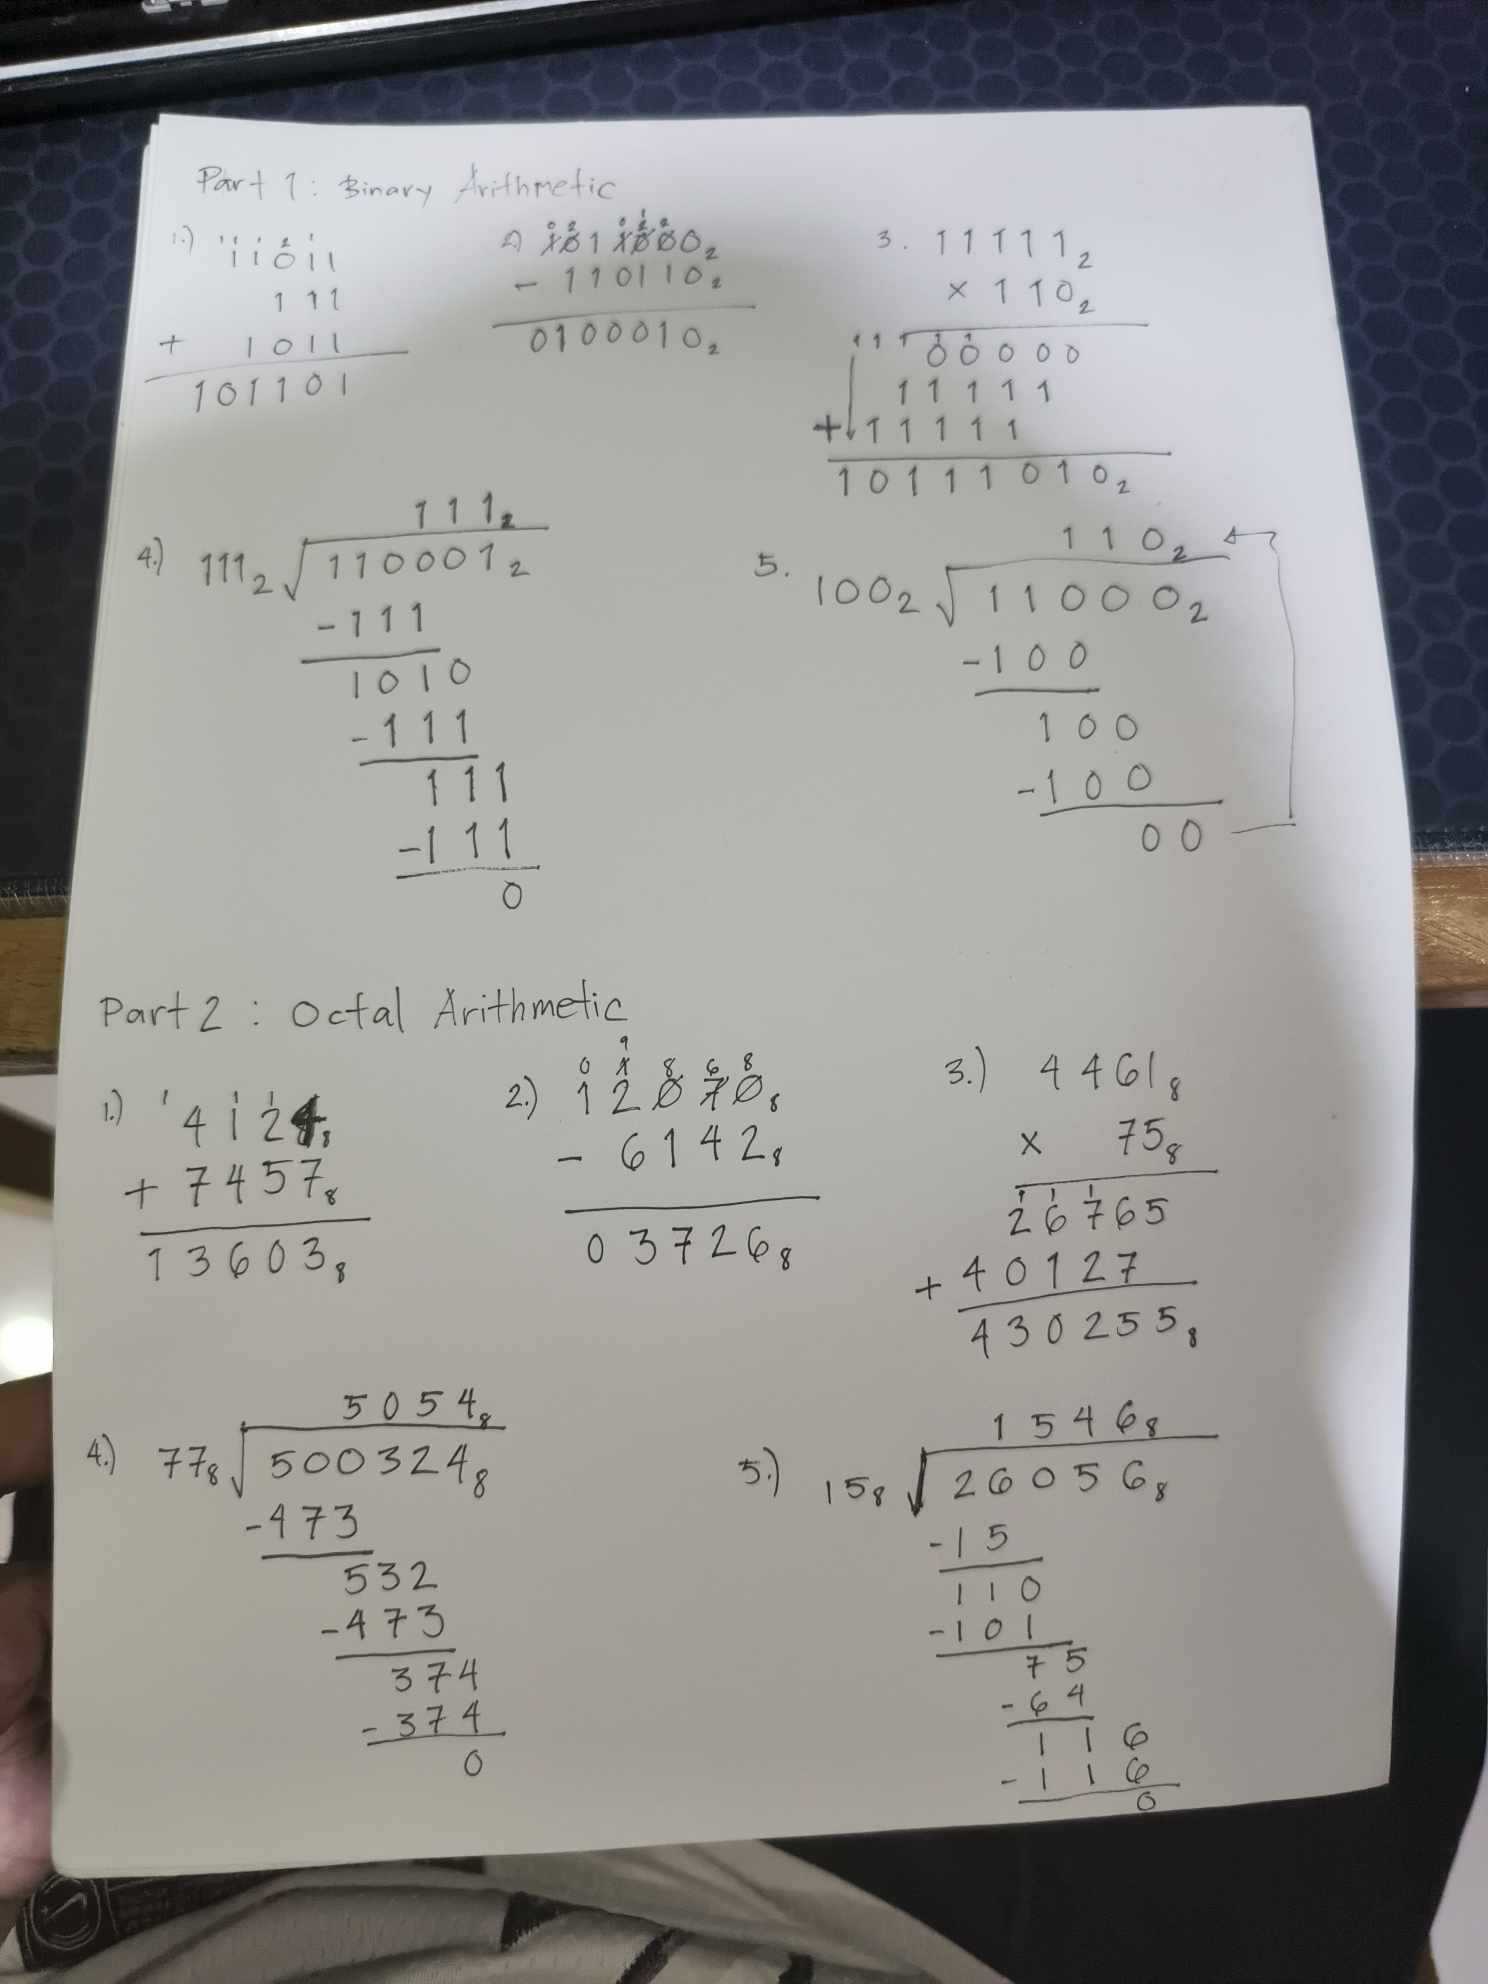 Part 1 : Binary Arithmetic
1.) 11011
111
+ 1011
101101
2) 1011000₂
- 110110₂
0100010₂
3. 11111₂
× 110₂
00000
11111
+ 11111
10111010₂
4.) 111₂ √110001₂
111₂
-111
1010
-111
111
-111
0
5. 100₂ √11000₂
110₂
-100
100
-100
00
Part 2 : Octal Arithmetic
1.) 4124₈
+ 7457₈
13603₈
2.) 12070₈
- 6142₈
03726₈
3.) 4461₈
× 75₈
26765
+ 40127
430255₈
5054₈
4.) 77₈ √500324₈
-473
532
-473
374
-374
0
1546₈
5.) 15₈ √26056₈
-15
110
-101
75
-64
116
-116
0